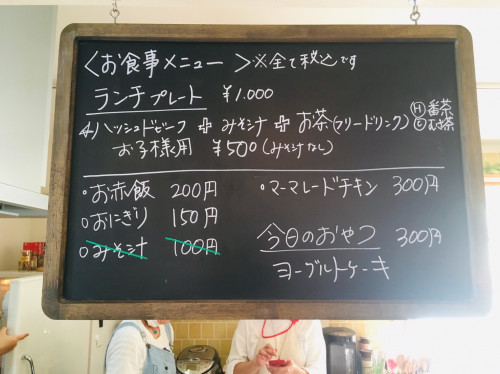 〈お食事メニュー〉※全て税込です
ランチプレート ¥1.000
ハッシュドビーフ + みそ汁 + お茶(フリードリンク) Ⓗ番茶
Ⓒむぎ茶
お子様用 ¥500(みそ汁なし)
○お赤飯 200円
○おにぎり 150円
○みそ汁 100円
○マーマレードチキン 300円
今日のおやつ 300円
ヨーグルトケーキ